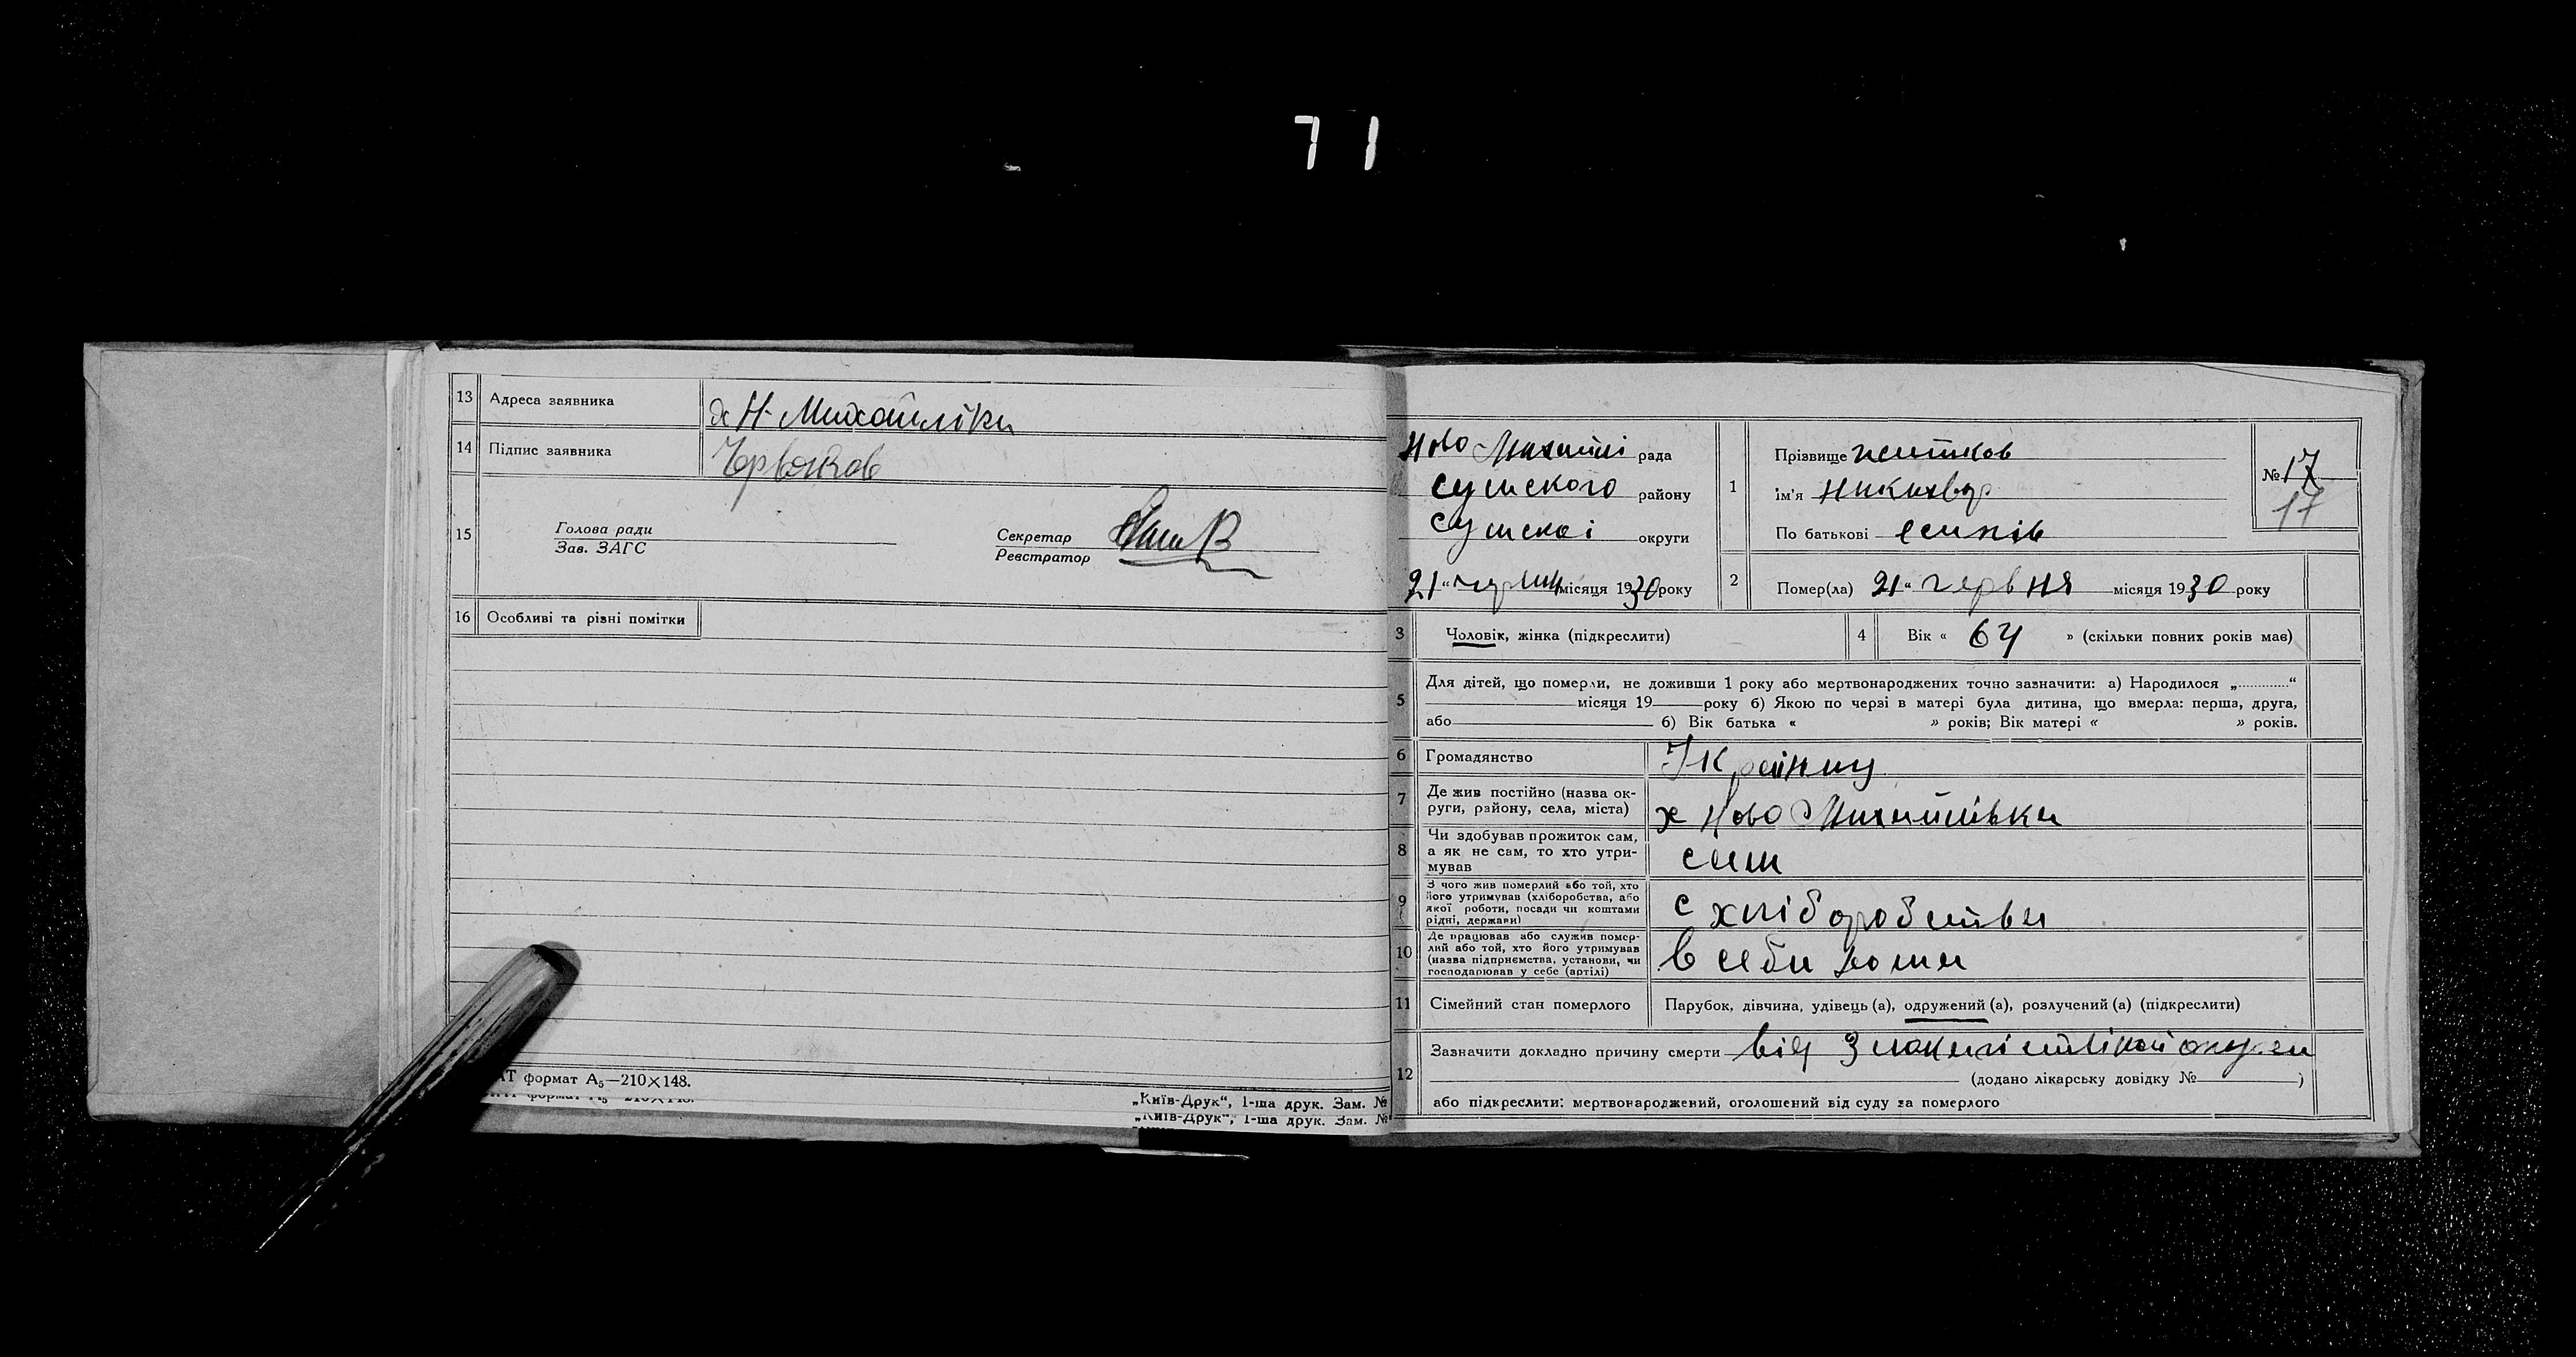 71
13 Адреса заявника х Н-Михайлівки
14 Підпис заявника Червяков
15 Голова ради
Зав. ЗАГС
Секретар
Реєстратор
16 Особливі та різні помітки
АТ формат А₅—210×148.
„Київ-Друк“, 1-ша друк. Зам. №
„Київ-Друк“, 1-ша друк. Зам. №
Ново рада
Сумского району
Сумскоі округи
21 “ місяця 1930 року
1 Прізвище
ім'я Никихвор
По батькові
№ 17
17
2 Помер(ла) 21 “ червня місяця 1930 року
3 Чоловік, жінка (підкреслити)
4 Вік « 64 » (скільки повних років має)
5 Для дітей, що померли, не доживши 1 року або мертвонароджених точно зазначити: а) Народилося „............“
місяця 19 року б) Якою по черзі в матері була дитина, що вмерла: перша, друга,
або б) Вік батька « » років; Вік матері « » років.
6 Громадянство
7 Де жив постійно (назва округи, району, села, міста) х Ново Михайлівка
8 Чи здобував прожиток сам, а як не сам, то хто утримував сам
9 З чого жив померлий або той, хто його утримував (хліборобства, або якої роботи, посади чи коштами рідні, держави) с хліборобства
10 Де працював або служив померлий або той, хто його утримував (назва підприємства, установи, чи господарював у себе (артілі) в себи дома
11 Сімейний стан померлого Парубок, дівчина, удівець (а), одружений (а), розлучений (а) (підкреслити)
12 Зазначити докладно причину смерти від
(додано лікарську довідку № )
або підкреслити: мертвонароджений, оголошений від суду за померлого